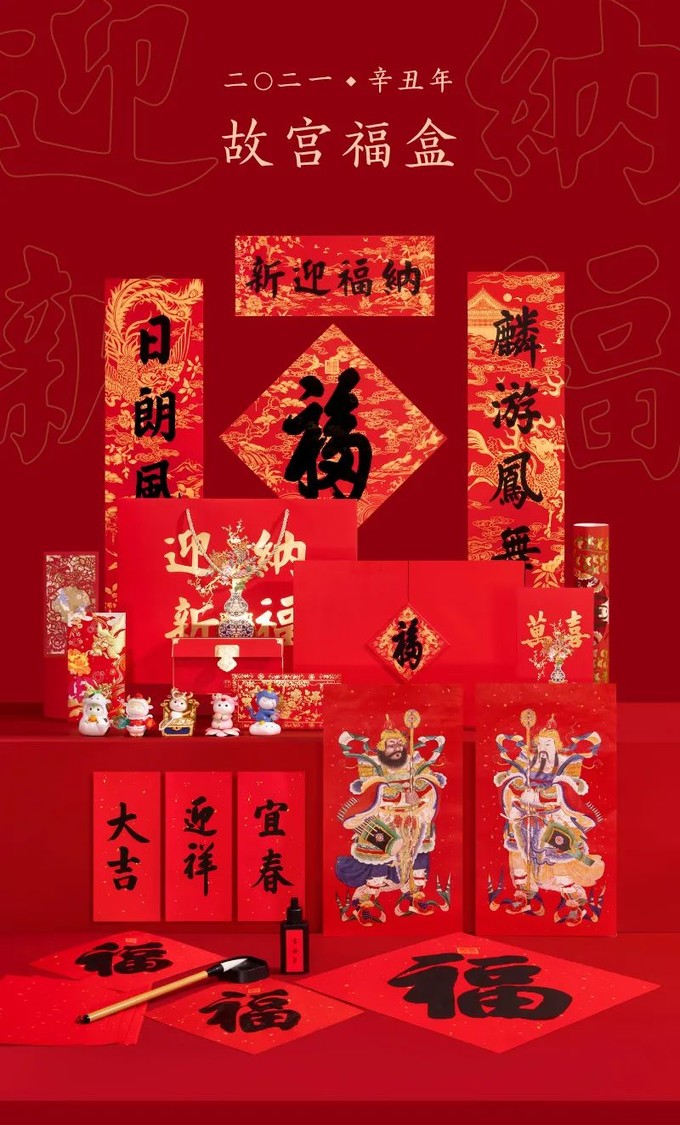 二〇二一◆辛丑年
故宫福盒
迎
納
新
福
新迎福納
日朗風
福
麟游鳳舞
迎納
新福
福
萬喜
大吉
迎祥
宜春
福
福
福